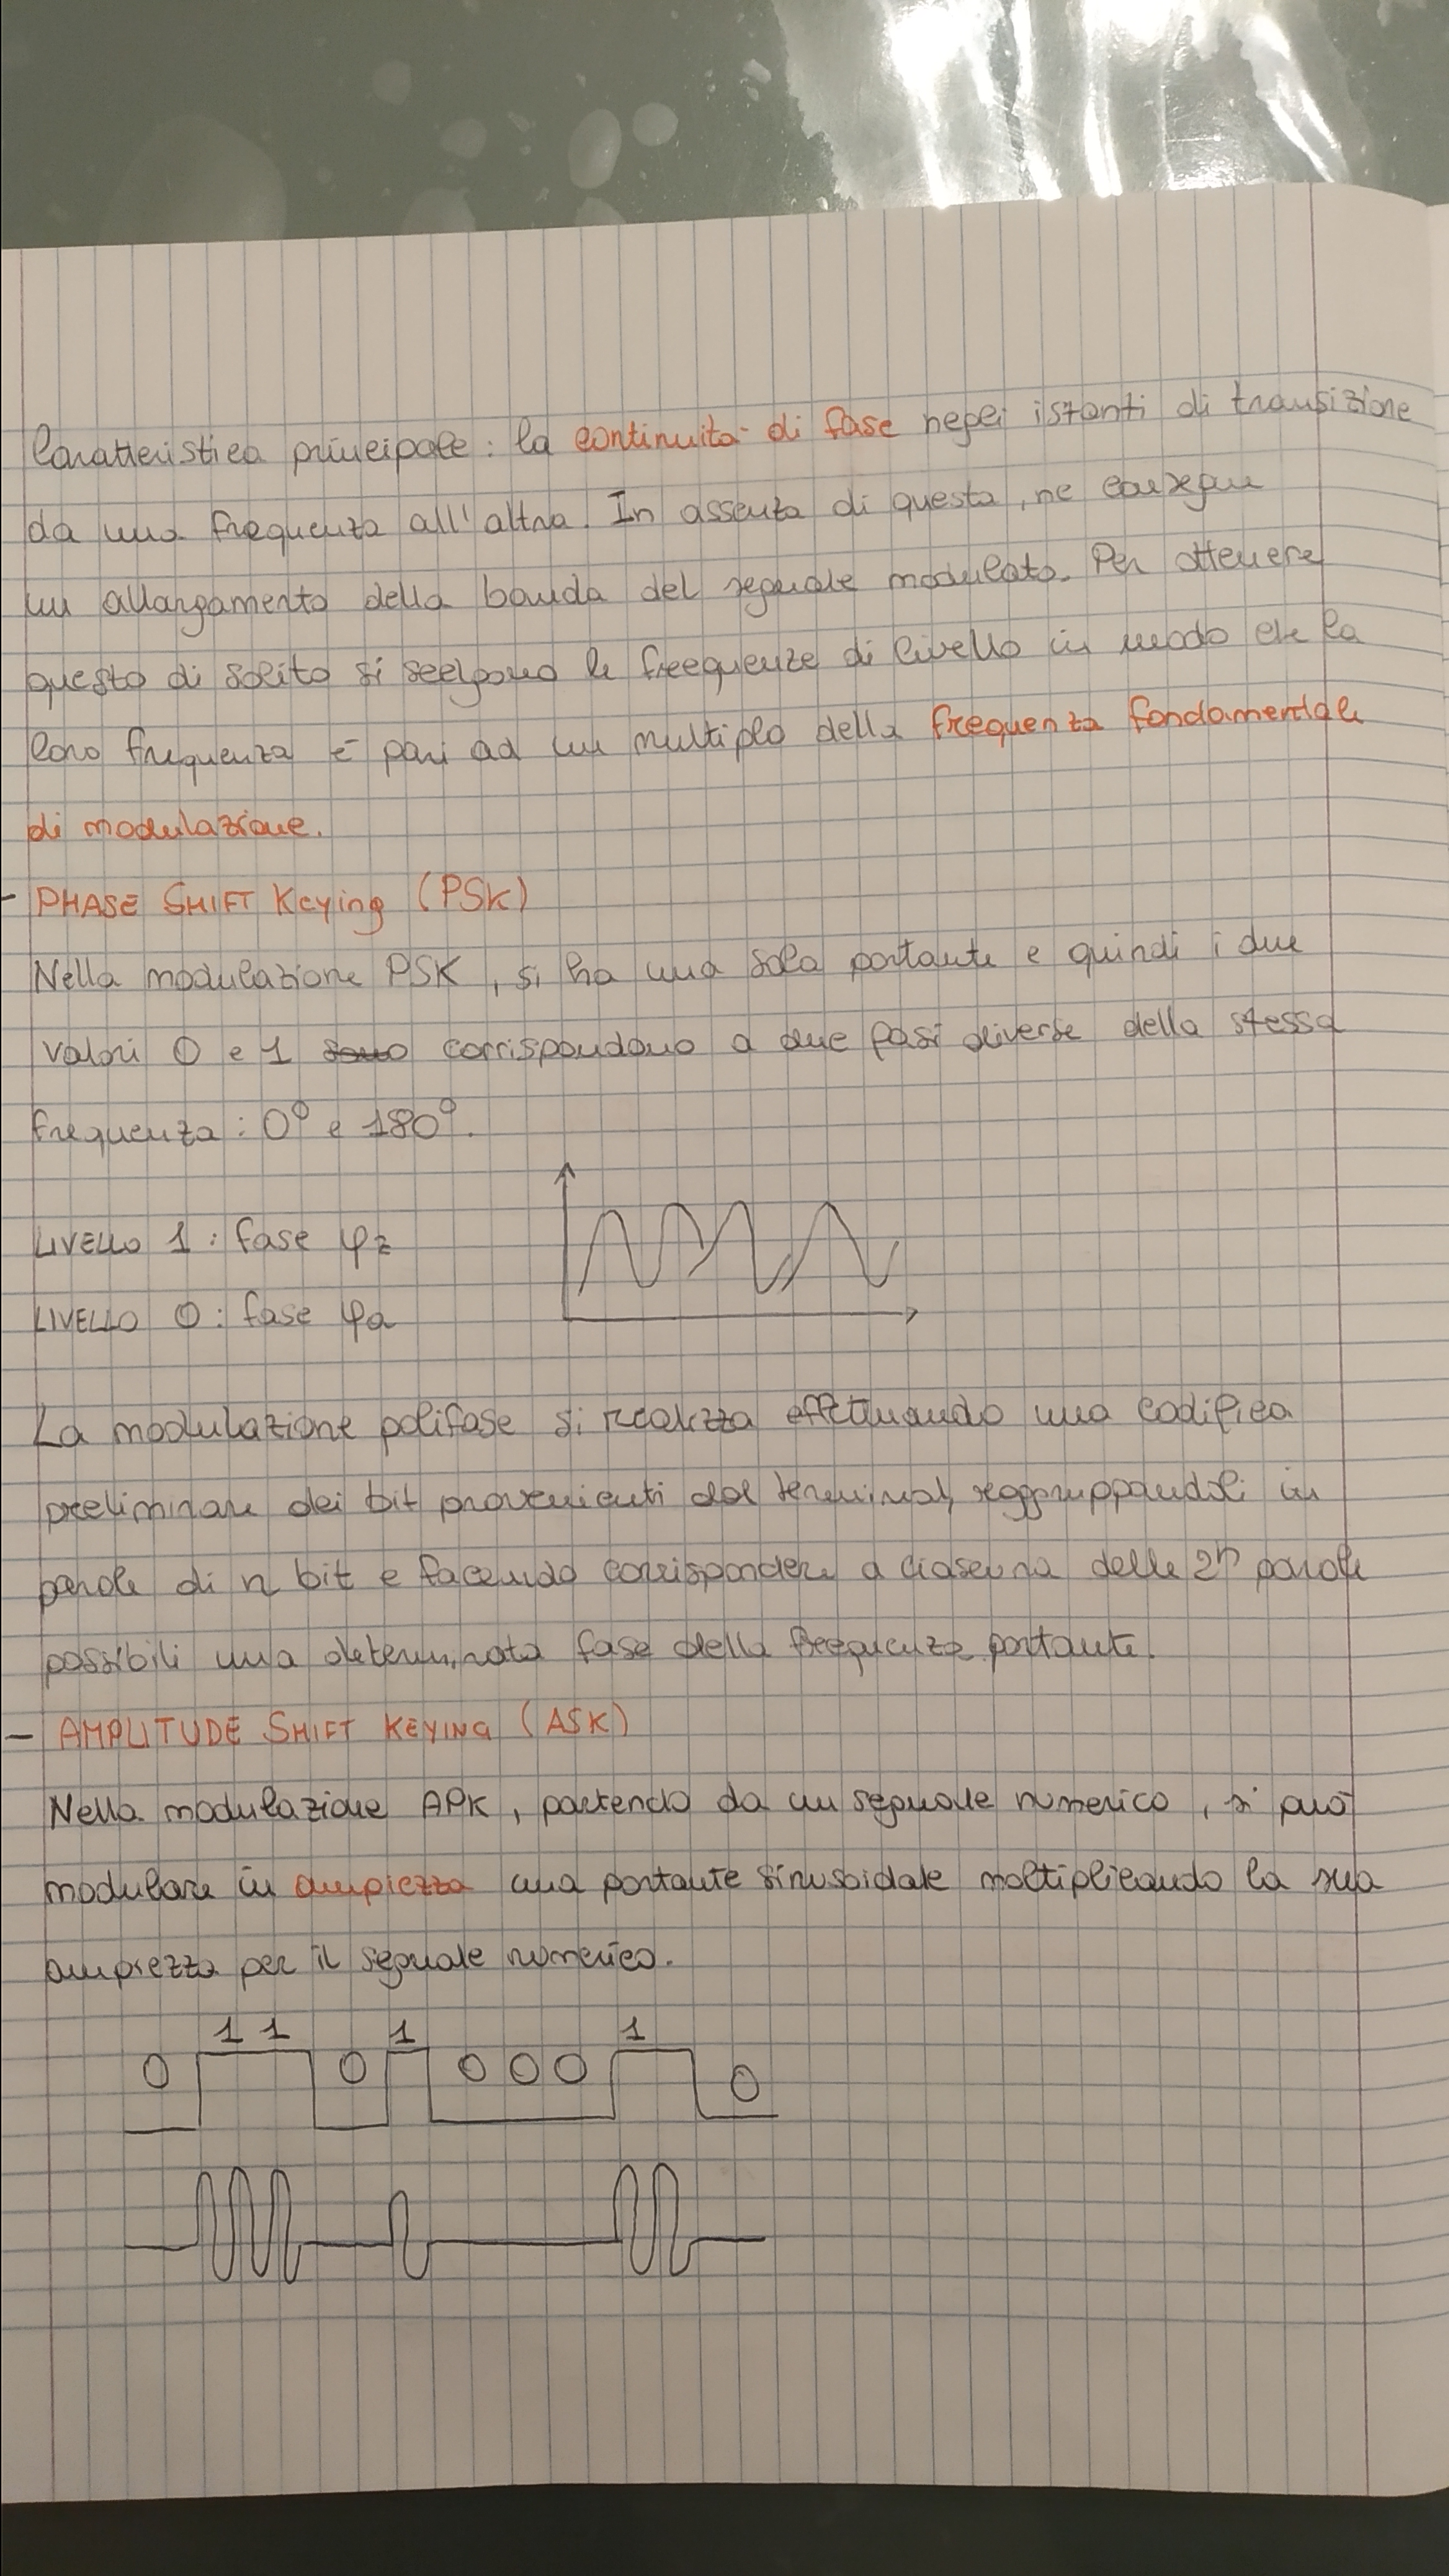 Caratteristica principale: la continuità di fase negli istanti di transizione
da una frequenza all'altra. In assenza di questa, ne consegue
un allargamento della banda del segnale modulato. Per ottenere
questo di solito si scelgono le freequenze di livello in modo che la
loro frequenza è pari ad un multiplo della frequenza fondamentale
di modulazione.
- PHASE SHIFT Keying (PSK)
Nella modulazione PSK, si ha una sola portante e quindi i due
valori 0 e 1 sono corrispondono a due fasi diverse della stessa
frequenza: 0° e 180°.
LIVELLO 1: fase φz
LIVELLO 0: fase φa
La modulazione polifase si realizza effettuando una codifica
preliminare dei bit provenienti dal terminal, raggruppandoli in
parole di n bit e facendo corrispondere a ciascuna delle 2ⁿ parole
possibili una determinata fase della frequenza portante.
- AMPLITUDE SHIFT KEYING (ASK)
Nella modulazione APK, partendo da un segnale numerico, si può
modulare in ampiezza una portante sinusoidale moltiplicando la sua
ampiezza per il segnale numerico.
0 1 1 0 1 0 0 0 1 0